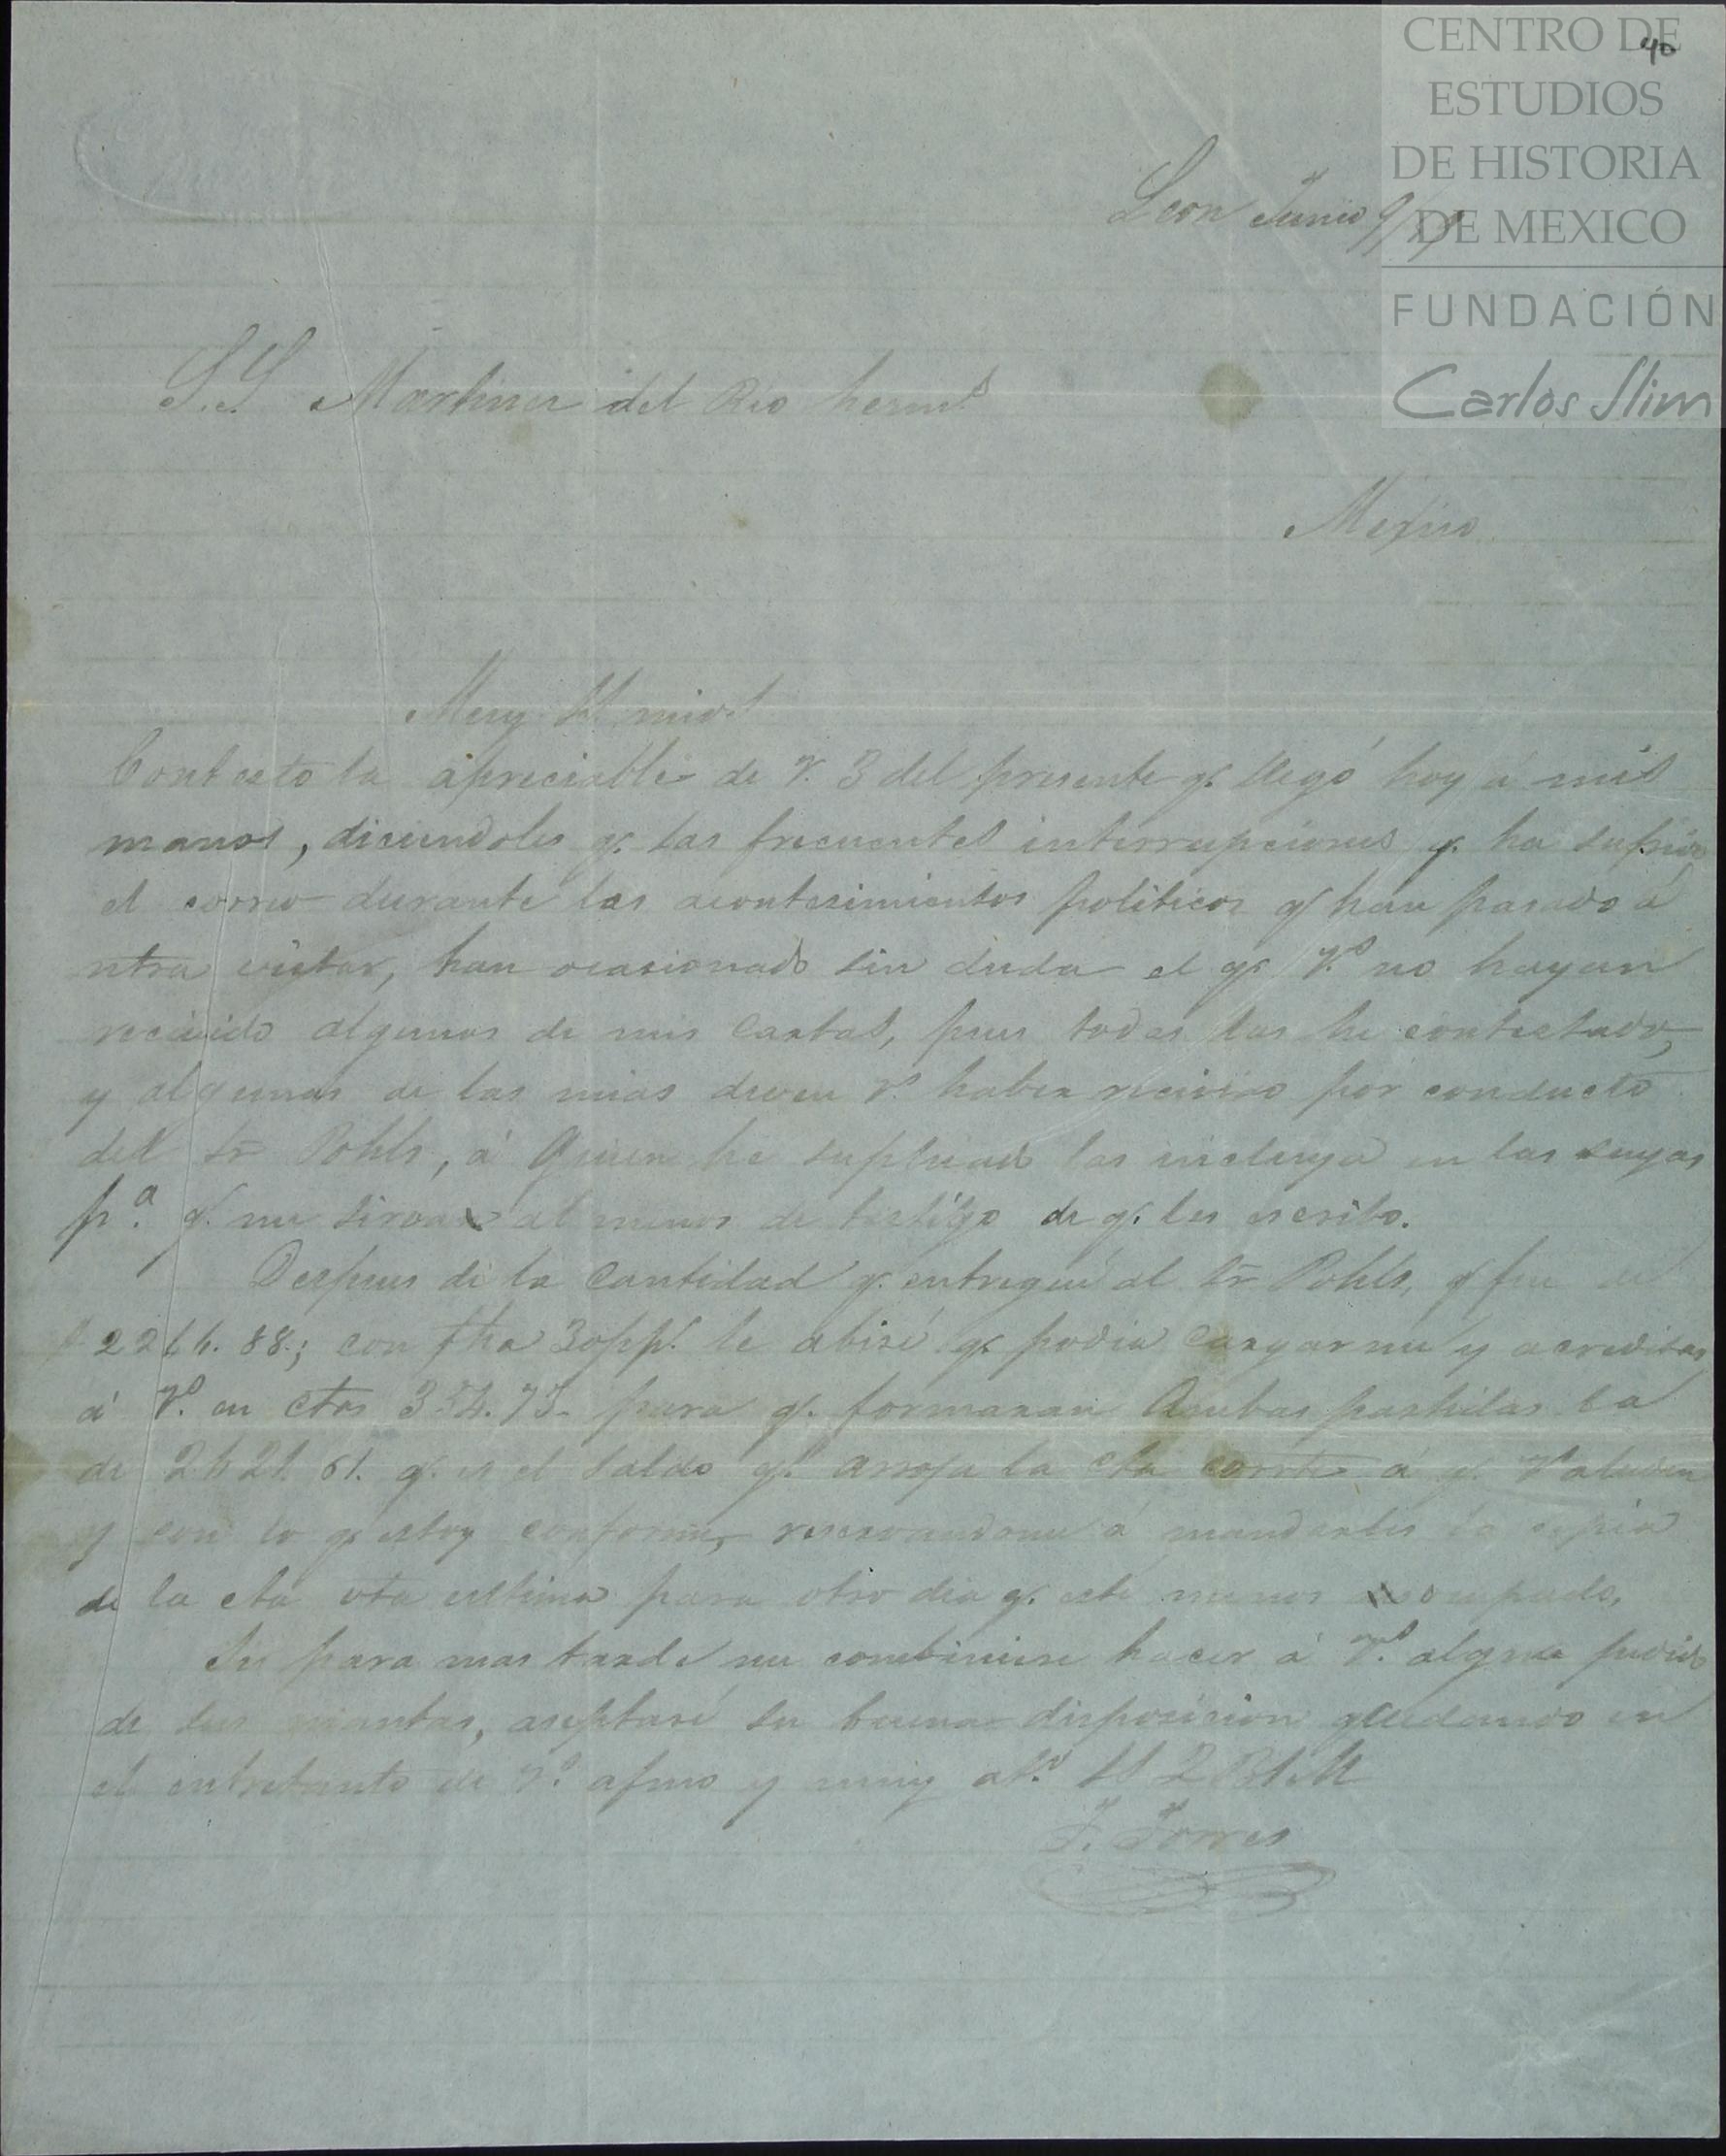 40
CENTRO DE
ESTUDIOS
DE HISTORIA
DE MEXICO
FUNDACIÓN
Carlos Slim
Leon Junio 9/
S.S Martinez del Rio herms
Mexico
Muy SS mios
Contesto la apreciable de V. 3 del presente q. llegó hoy á mis
manos, diciendoles q. las frecuentes interrupciones q. ha sufrido
el correo durante los acontesimientos politicos q han pasado á
ntra vista, han ocasionado sin duda el q. Vs no hayan
recivido algunas de mis Cartas, pues todas las he contestado,
y algunas de las mias deven Vs haber recivido por conducto
del Sr Pohls, á Quien he suplicado las incluya en las suyas
p.a q. me sirva al menos de testigo de q. les escribo.
Despues de la Cantidad q. entregué al Sr Pohls, q fue de
88; con fha 30 pp. le abisé q. podia Cargarme y acreditar
á Vs. en cta para q. formaran Ambas partidas la
de 61. q. es el saldo q. arroja la cta corrte á q. Vs aluden
y con lo q. estoy conforme, reservandome á mandarles la copia
de la cta vta ultima para otro dia q. esté menos ocupado,
Si para mas tarde me combiniere hacer á Vs. algun pedido
de sus mantas, aseptaré su buena disposicion quedando en
el entretanto de Vs. afmo y muy atto SS Q B S M
F. Torres